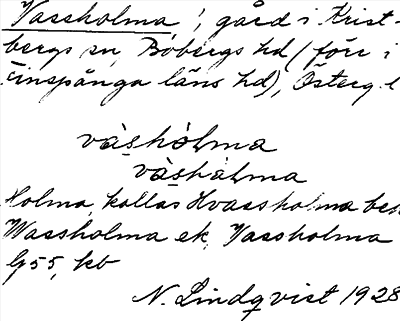 Vassholma, gård i Krist-
bergs sn, Bobergs hd (förr i
Finspånga läns hd), Österg. l
vàshòlma
vàshàlma
Holma, kallas Hvassholma
Wassholma ek, Vassholma
G55, kb
N. Lindqvist 1928